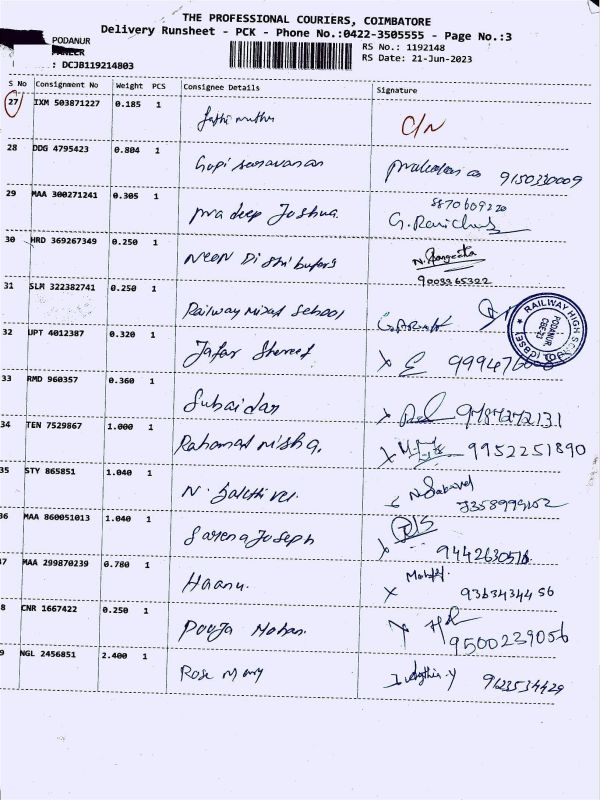 THE PROFESSIONAL COURIERS, COIMBATORE
Delivery Runsheet - PCK - Phone No.:0422-3505555 - Page No.:3
PODANUR
RS No.: 1192148
RS Date: 21-Jun-2023
: DCJB119214803
S No Consignment No Weight PCS Consignee Details Signature
27 IXM 503871227 0.185 1 C/N
28 DDG 4795423 0.804 1 Gopi saravanan 9150330009
29 MAA 300271241 0.305 1 pradeep Joshua.
30 HRD 369267349 0.250 1 Neon Distributors N. Sangeeta
31 SLM 322382741 0.250 1 Railway mixed School
RAILWAY HIGH PODANUR (CBSE)
32 UPT 4012387 0.320 1 Jafar Shereef
33 RMD 960357 0.360 1 9787272131
34 TEN 7529867 1.000 1 Rahamat nisha. 9952251890
35 STY 865851 1.040 1 N. Sakthi vel
36 MAA 860051013 1.040 1 Sarena Joseph 9442630516
37 MAA 299870239 0.780 1 9363434456
8 CNR 1667422 0.250 1 Pooja Mohan. 9500239056
9 NGL 2456851 2.400 1 Rose mary 9123534429